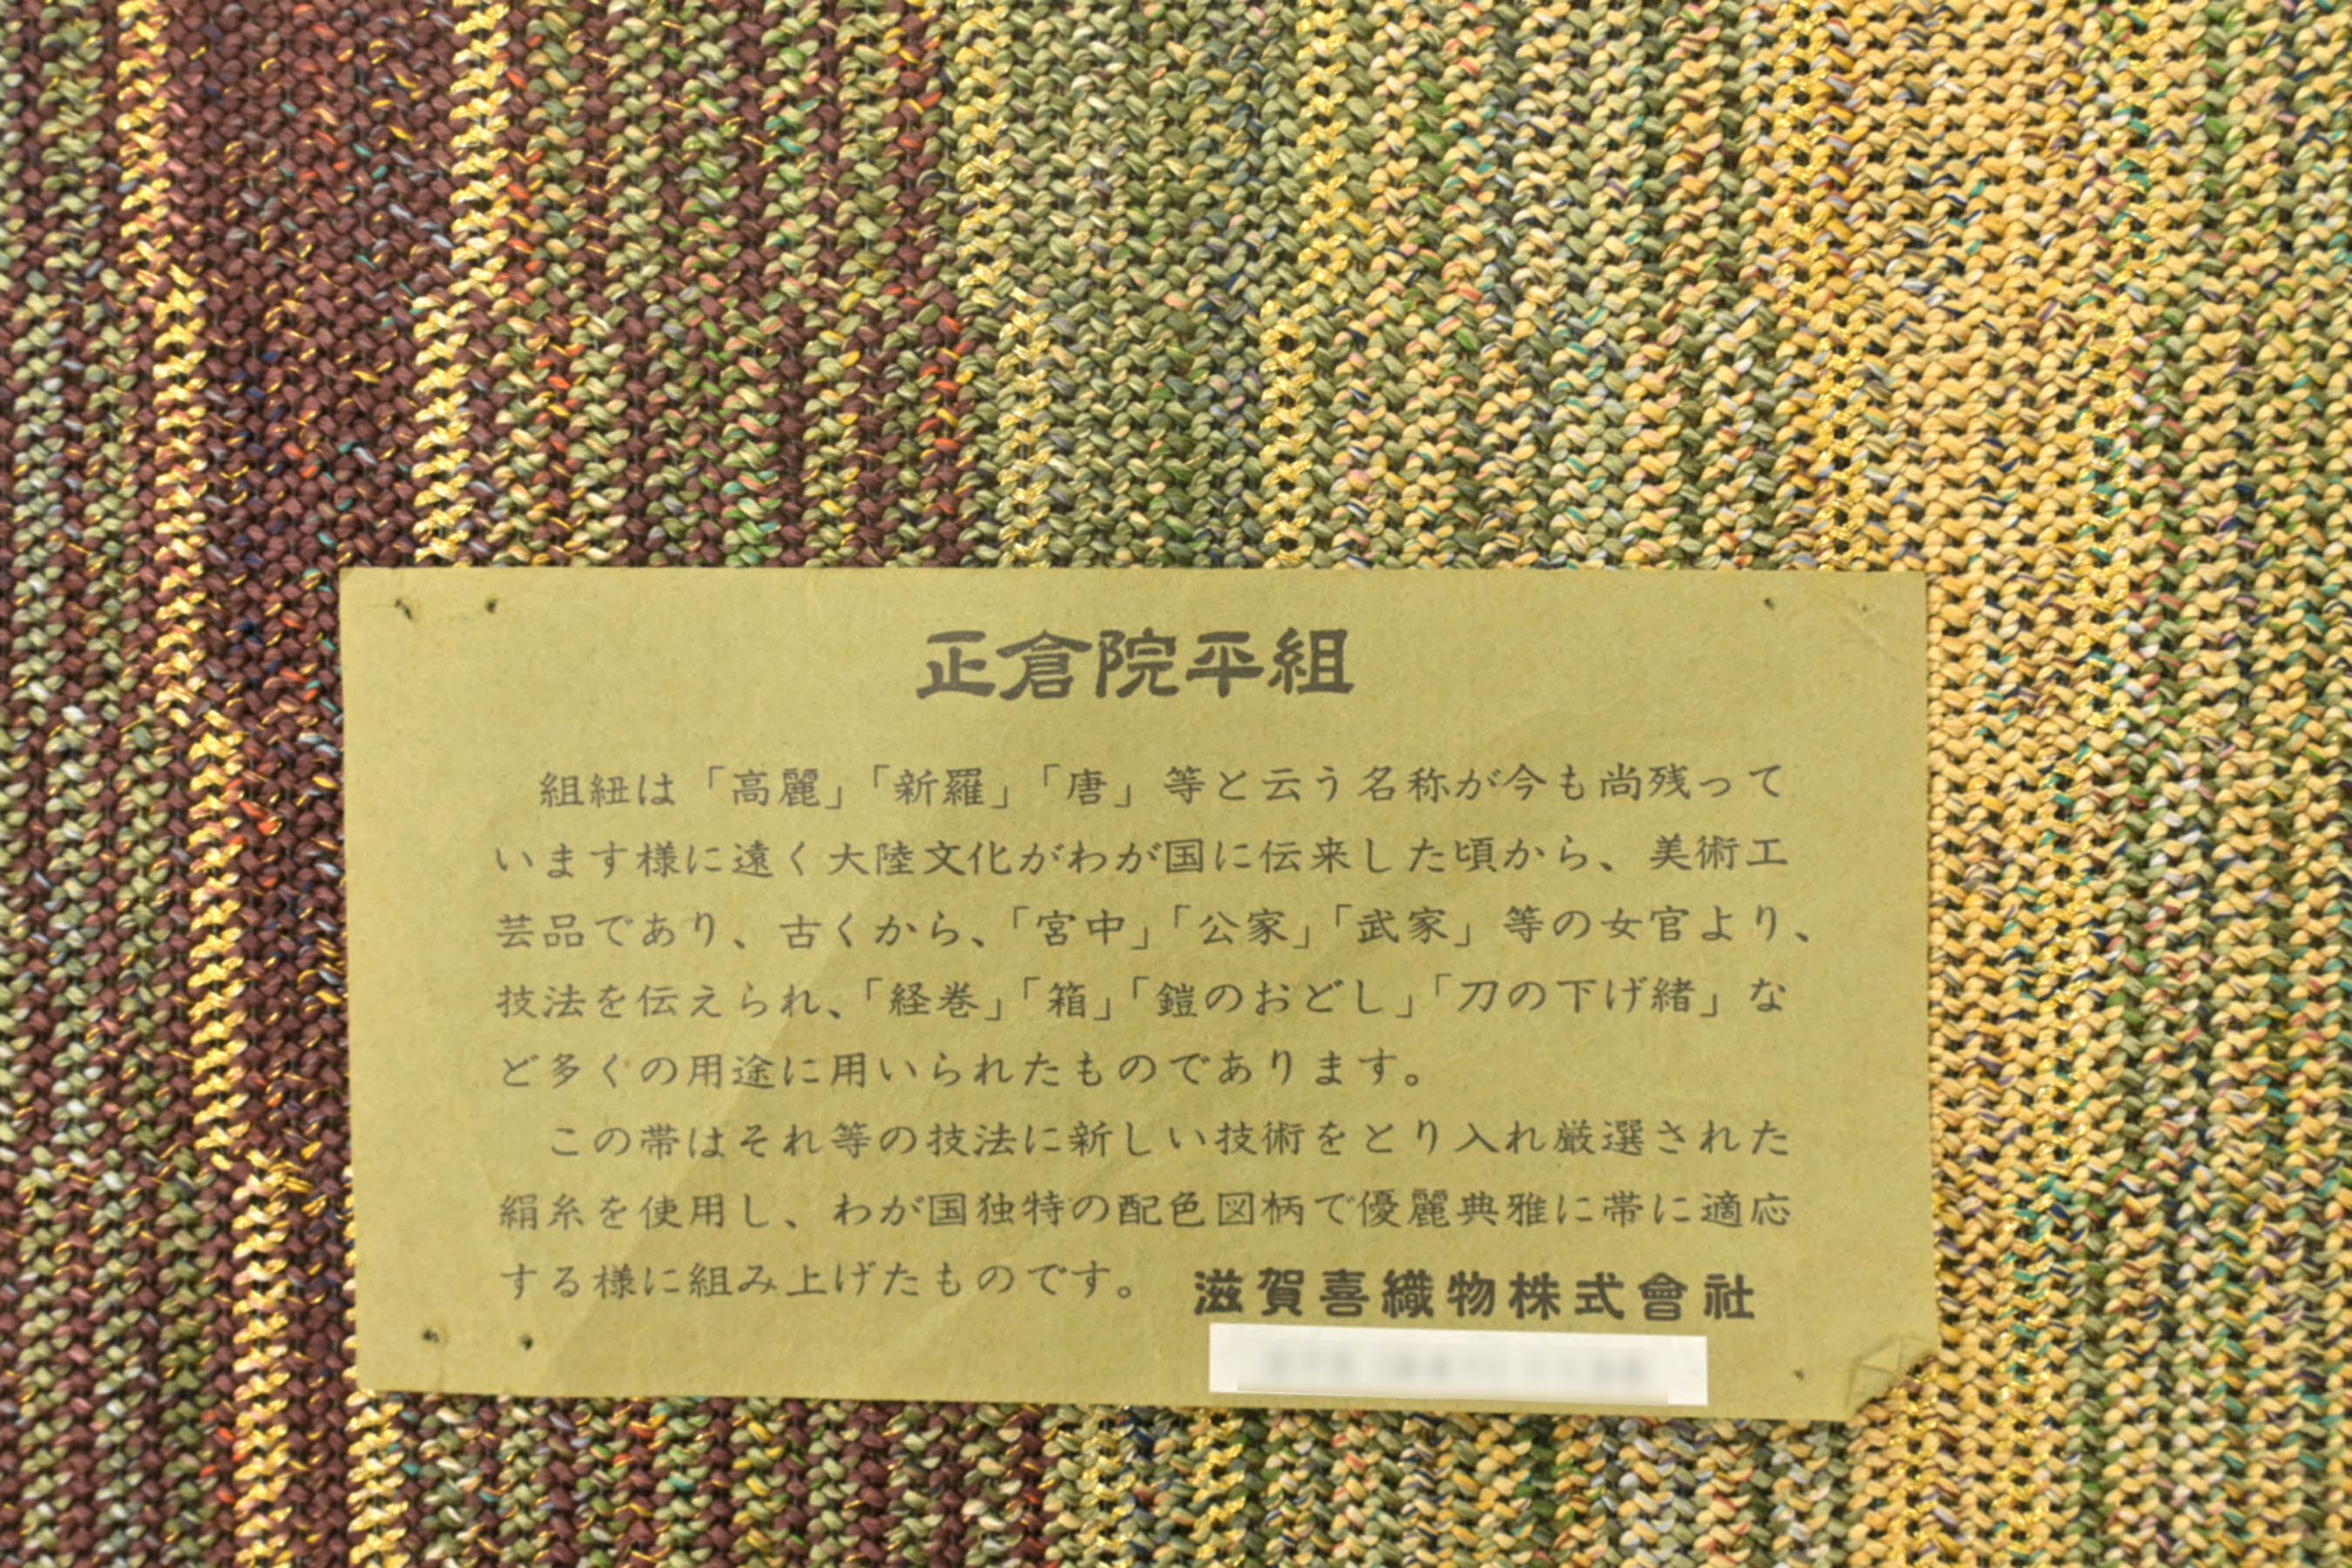 正倉院平組
組紐は「高麗」「新羅」「唐」等と云う名称が今も尚残って
います様に遠く大陸文化がわが国に伝来した頃から、美術工
芸品であり、古くから、「宮中」「公家」「武家」等の女官より、
技法を伝えられ、「経巻」「箱」「鎧のおどし」「刀の下げ緒」な
ど多くの用途に用いられたものであります。
この帯はそれ等の技法に新しい技術をとり入れ厳選された
絹糸を使用し、わが国独特の配色図柄で優麗典雅に帯に適応
する様に組み上げたものです。
滋賀喜織物株式會社